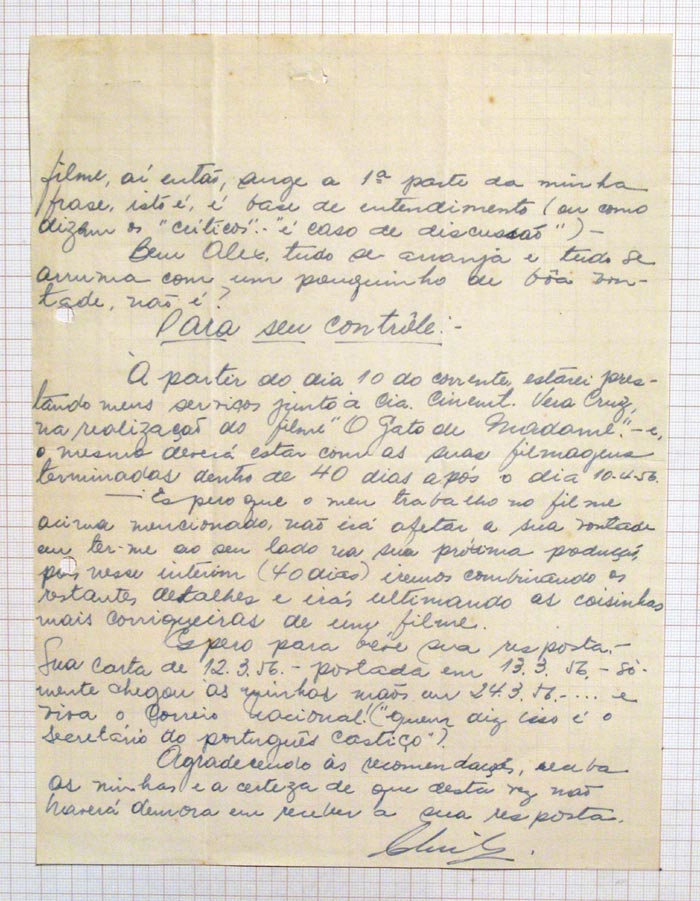 filme, aí então, surge a 1ª parte da minha
frase, isto é, é base de entendimento (ou como
dizem os "críticos".- "é caso de discussão") -
Bem Alex, tudo se arranja e tudo se
arruma com um pouquinho de bôa von-
tade, não é?
Para seu contrôle:-
A partir do dia 10 do corrente, estarei pres-
tando meus serviços junto à Cia. Cinemt. Vera Cruz,
na realização do filme "O Gato de Madame". - e,
o mesmo deverá estar com as suas filmagens
terminadas dentro de 40 dias após o dia 10-4-56.
— Espero que o meu trabalho no filme
acima mencionado, não irá afetar a sua vontade
em ter-me ao seu lado na sua próxima podução,
pois nesse interim (40 dias) iremos combinando os
restantes detalhes e irás ultimando as coisinhas
mais corriqueiras de um filme.
Espero para breve sua resposta.-
Sua carta de 12.3.56.- postada em 13.3.56.- sò-
mente chegou às minhas mãos em 24.3.56.- .... e
viva o Correio Nacional! ("quem diz isso é o
secretário do português castiço").
Agradecendo às recomendações, receba
as minhas e a certeza de que desta vez não
haverá demora em receber a sua resposta.